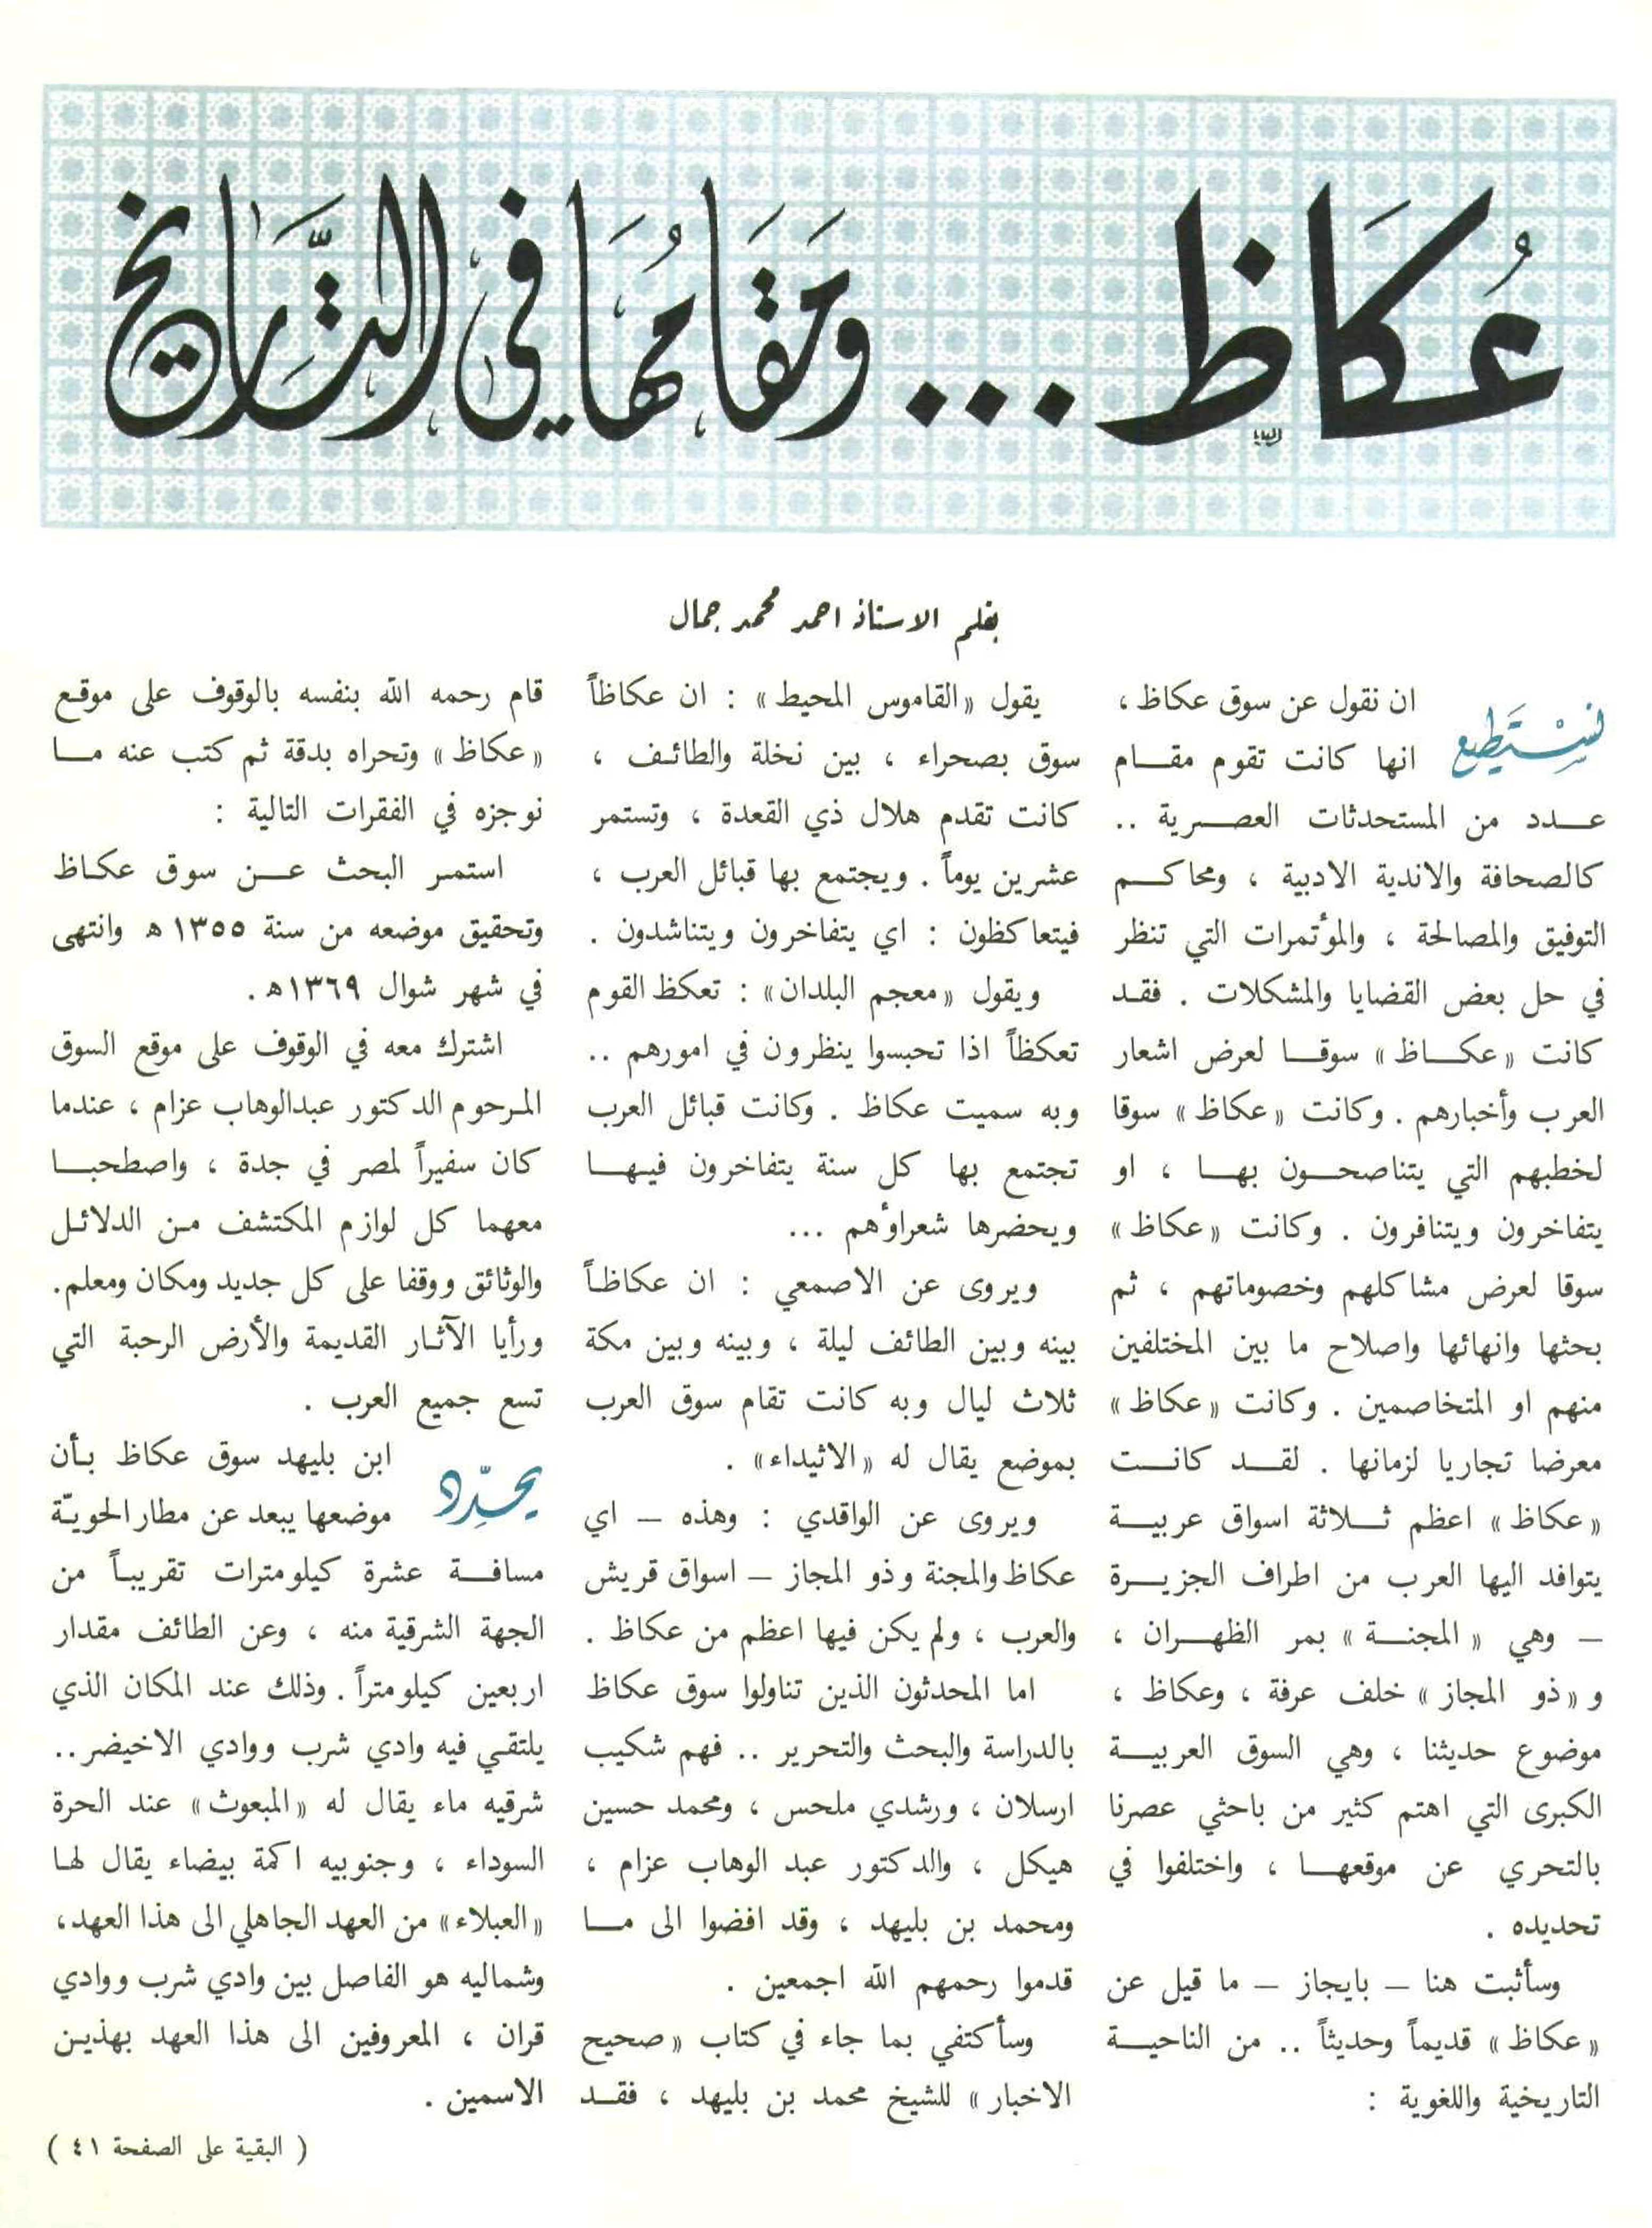 عُكَاظ ... وَمَقَامُهَا فِي التَّارِيخ
بقلم الاستاذ احمد محمد جمال
نَسْتَطِيع ان نقول عن سوق عكاظ ،
انها كانت تقوم مقـــام
عـــدد من المستحدثات العصـــرية ..
كالصحافة والاندية الادبية ، ومحاكـــم
التوفيق والمصالحة ، والمؤتمرات التي تنظر
في حل بعض القضايا والمشكلات . فقـد
كانت « عكـــاظ » سوقـــا لعرض اشعار
العرب وأخبارهم . وكانت « عكاظ » سوقا
لخطبهم التي يتناصحـــون بهـــا ، او
يتفاخرون ويتنافرون . وكانت « عكاظ »
سوقا لعرض مشاكلهم وخصوماتهم ، ثم
بحثها وانهائها واصلاح ما بين المختلفين
منهم او المتخاصمين . وكانت « عكاظ »
معرضا تجاريا لزمانها . لقـــد كانـــت
« عكاظ » اعظم ثـــلاثة اسواق عربيـــة
يتوافد اليها العرب من اطراف الجزيـــرة
– وهي « المجنـــة » بمر الظهـــران ،
و « ذو المجاز » خلف عرفة ، وعكاظ ،
موضوع حديثنا ، وهي السوق العربيـــة
الكبرى التي اهتم كثير من باحثي عصرنا
بالتحري عن موقعهـــا ، واختلفوا في
تحديده .
وسأثبت هنا – بايجاز – ما قيل عن
« عكاظ » قديماً وحديثاً .. من الناحيـــة
التاريخية واللغوية :
يقول « القاموس المحيط » : ان عكاظاً
سوق بصحراء ، بين نخلة والطائـف ،
كانت تقدم هلال ذي القعدة ، وتستمر
عشرين يوماً . ويجتمع بها قبائل العرب ،
فيتعاكظون : اي يتفاخرون ويتناشدون .
ويقول « معجم البلدان » : تعكظ القوم
تعكظاً اذا تحبسوا ينظرون في امورهم ..
وبه سميت عكاظ . وكانت قبائل العرب
تجتمع بها كل سنة يتفاخرون فيهـــا
ويحضرها شعراؤهم ...
ويروى عن الاصمعي : ان عكاظـاً
بينه وبين الطائف ليلة ، وبينه وبين مكة
ثلاث ليال وبه كانت تقام سوق العرب
بموضع يقال له « الاثيداء » .
ويروى عن الواقدي : وهذه – اي
عكاظ والمجنة وذو المجاز – اسواق قريش
والعرب ، ولم يكن فيها اعظم من عكاظ .
اما المحدثون الذين تناولوا سوق عكاظ
بالدراسة والبحث والتحرير .. فهم شكيب
ارسلان ، ورشدي ملحس ، ومحمد حسين
هيكل ، والدكتور عبد الوهاب عزام ،
ومحمد بن بليهد ، وقد افضوا الى مـــا
قدموا رحمهم الله اجمعين .
وسأكتفي بما جاء في كتاب « صحيح
الاخبار » للشيخ محمد بن بليهد ، فقـــد
قام رحمه الله بنفسه بالوقوف على موقـع
« عكاظ » وتحراه بدقة ثم كتب عنه مـــا
نوجزه في الفقرات التالية :
استمـر البحث عـــن سوق عكـاظ
وتحقيق موضعه من سنة ١٣٥٥ ﻫ وانتهى
في شهر شوال ١٣٦٩ﻫ .
اشترك معه في الوقوف على موقع السوق
المـرحوم الدكتور عبدالوهاب عزام ، عندما
كان سفيراً لمصر في جدة ، واصطحبـــا
معهما كل لوازم المكتشف مـن الدلائـل
والوثائق ووقفا على كل جديد ومكان ومعلم.
ورأيا الآثـار القديمة والأرض الرحبة التي
تسع جميع العرب .
يحدِّد ابن بليهد سوق عكاظ بـأن
موضعها يبعد عن مطار الحويـّة
مسافـــة عشرة كيلومترات تقريبـاً من
الجهة الشرقية منه ، وعن الطائف مقدار
اربعين كيلومتراً . وذلك عند المكان الذي
يلتقـي فيه وادي شرب ووادي الاخيضر..
شرقيه ماء يقال له « المبعوث » عند الحرة
السوداء ، وجنوبيه اكمة بيضاء يقال لهـا
« العبلاء » من العهد الجاهلي الى هذا العهد،
وشماليه هو الفاصل بين وادي شرب ووادي
قران ، المعروفين الى هذا العهد بهذيـن
الاسمين .
( البقية على الصفحة ٤١ )